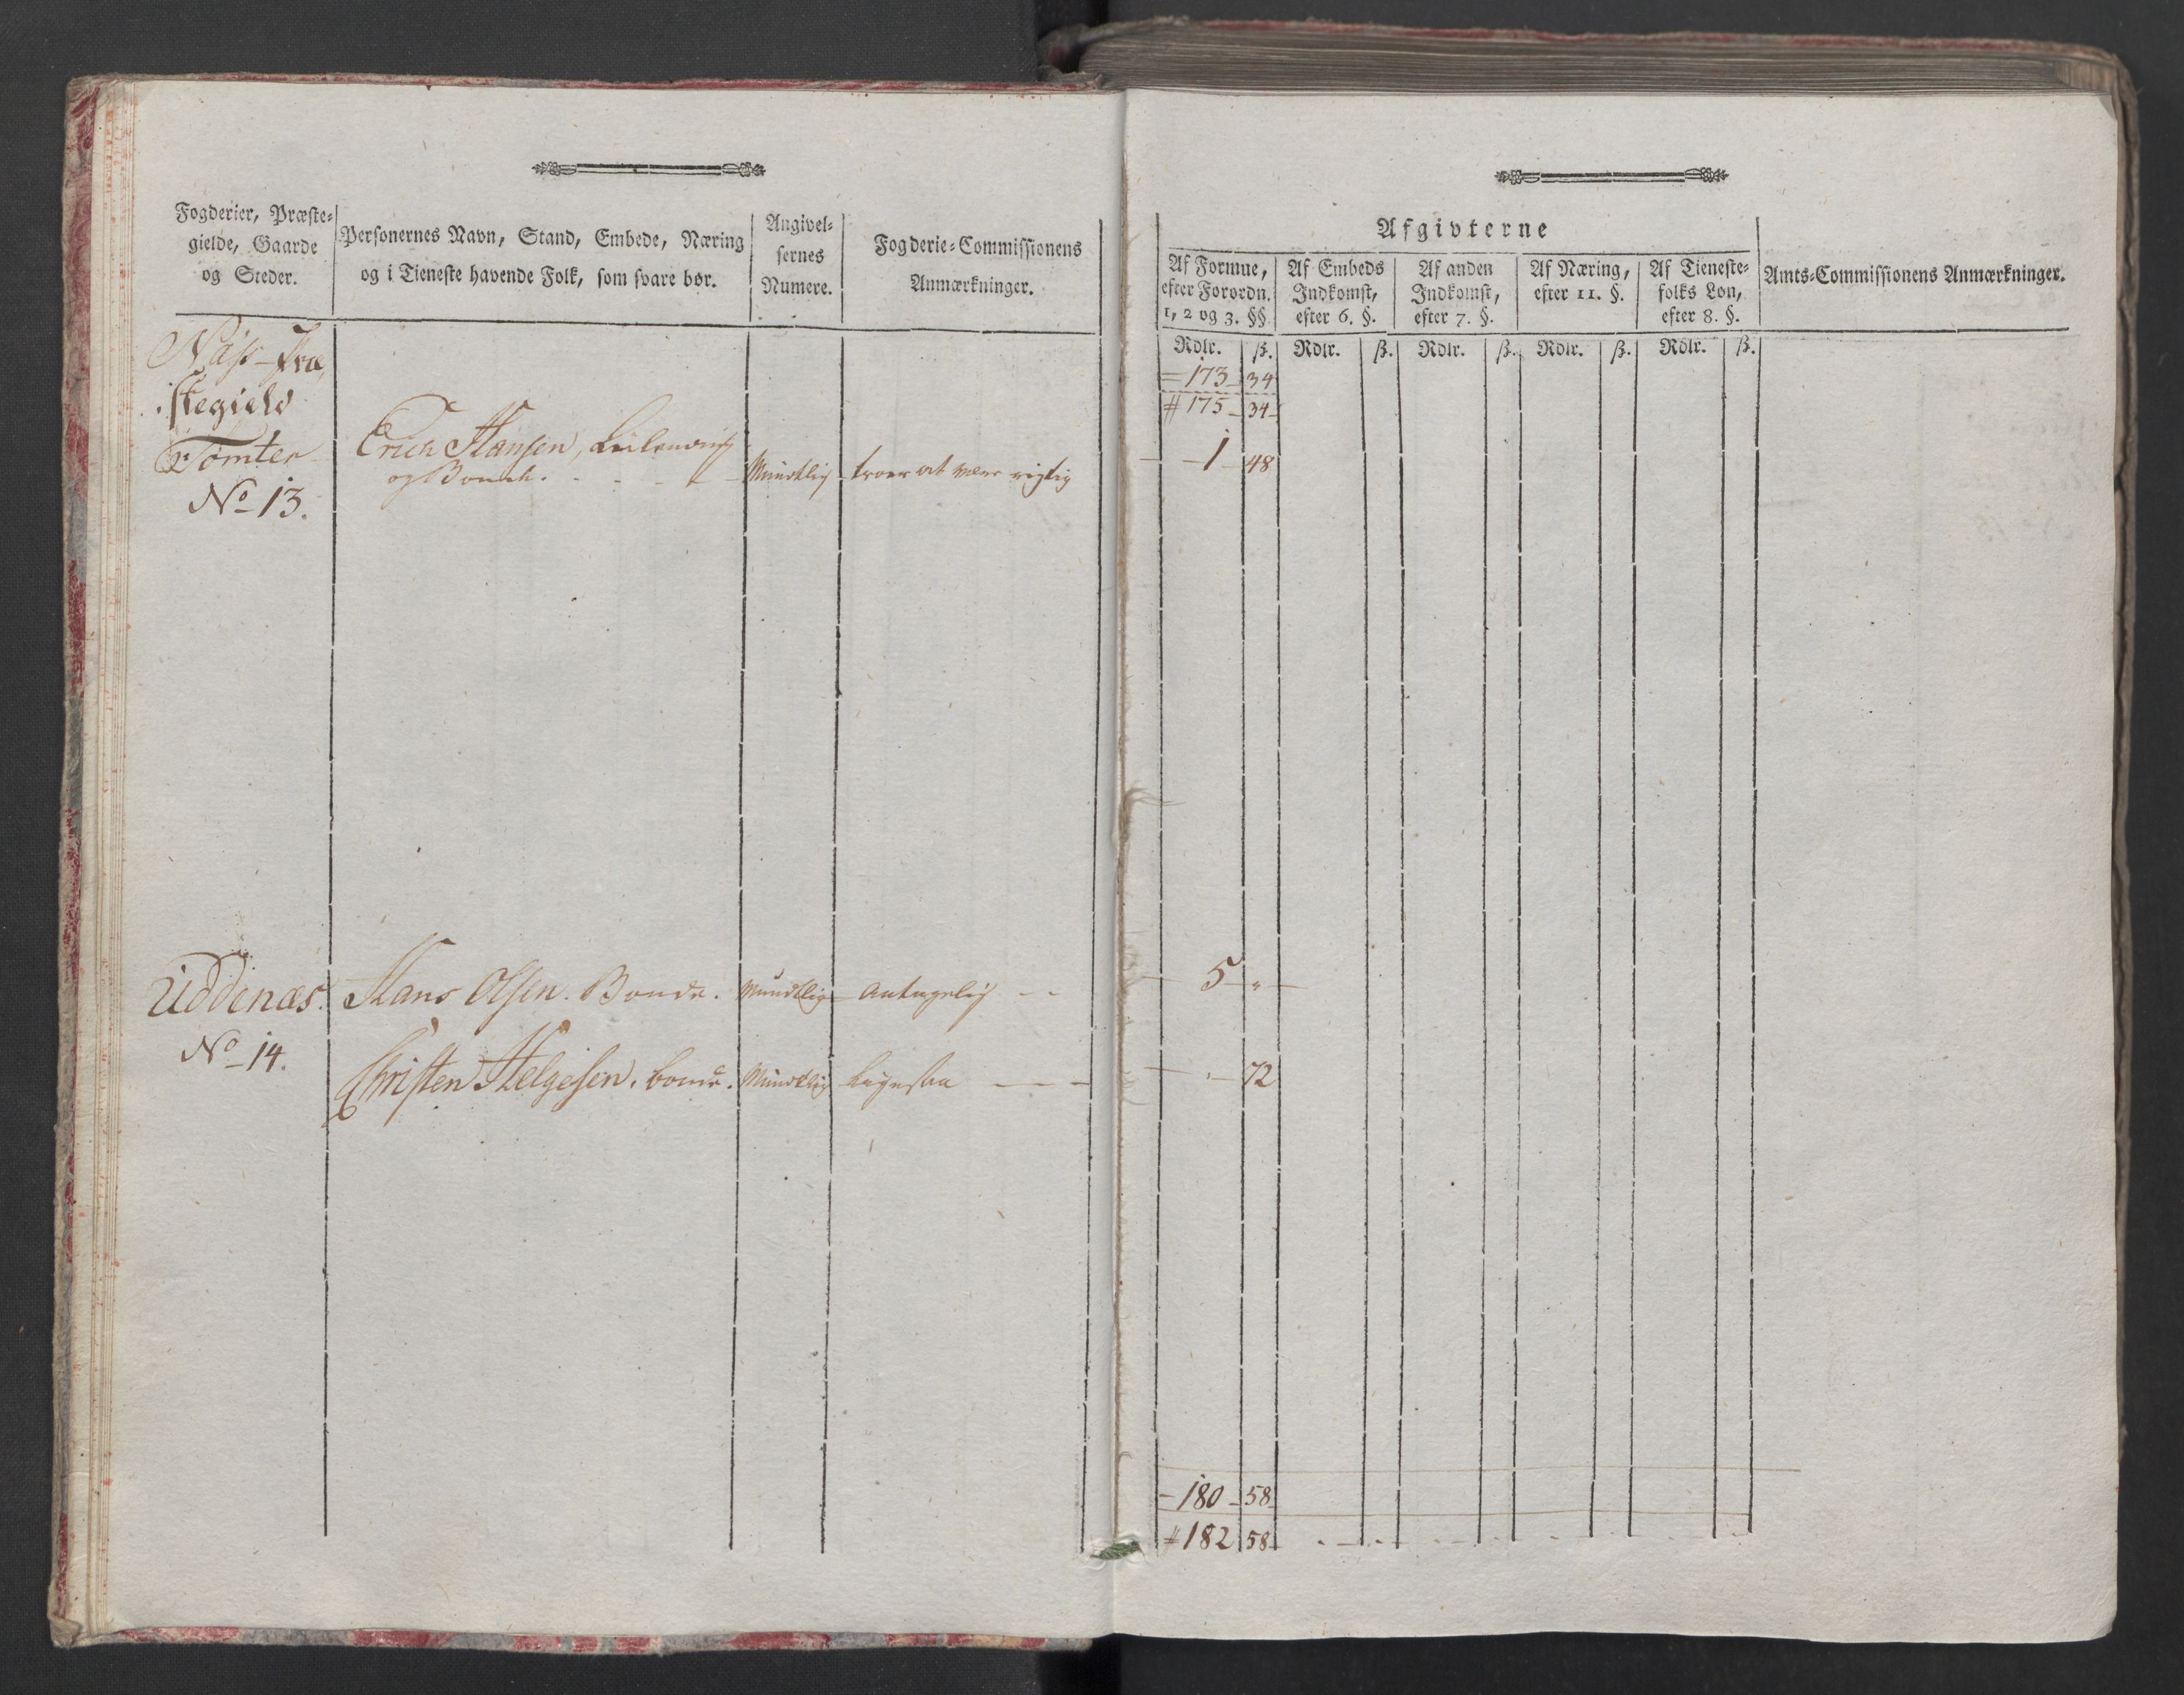 Fogderier, Præste-
gielde, Gaarde
og Steder.
Personernes Navn, Stand, Embede, Næring
og i Tieneste havende Folk, som svare bør.
Angivel-
sernes
Numere.
Fogderie-Commissionens
Anmærkninger.
Afgivterne
Af Formue,
efter Forordn.
1, 2 og 3. §§.
Af Embeds
Indkomst,
efter 6. §.
Af anden
Indkomst,
efter 7. §.
Af Næring,
efter 11. §.
Af Tieneste-
folks Løn,
efter 8. §.
Amts-Commissionens Anmærkninger.
Rdlr. ß. Rdlr. ß. Rdlr. ß. Rdlr. ß. Rdlr. ß.
Næss-Præ-
stegield
= 173 34
# 175 34
Tomter
No 13.
Erich Hansen,
og Bonde. Mundtlig troer at være rigtig 1 48
Uddenæs. Hans Olsen. Bonde. Mundtlig Antagelig 5 "
No 14.
Christen Helgesen, bonde. Mundtlig Ligesaa - 72
180 58
# 182 58